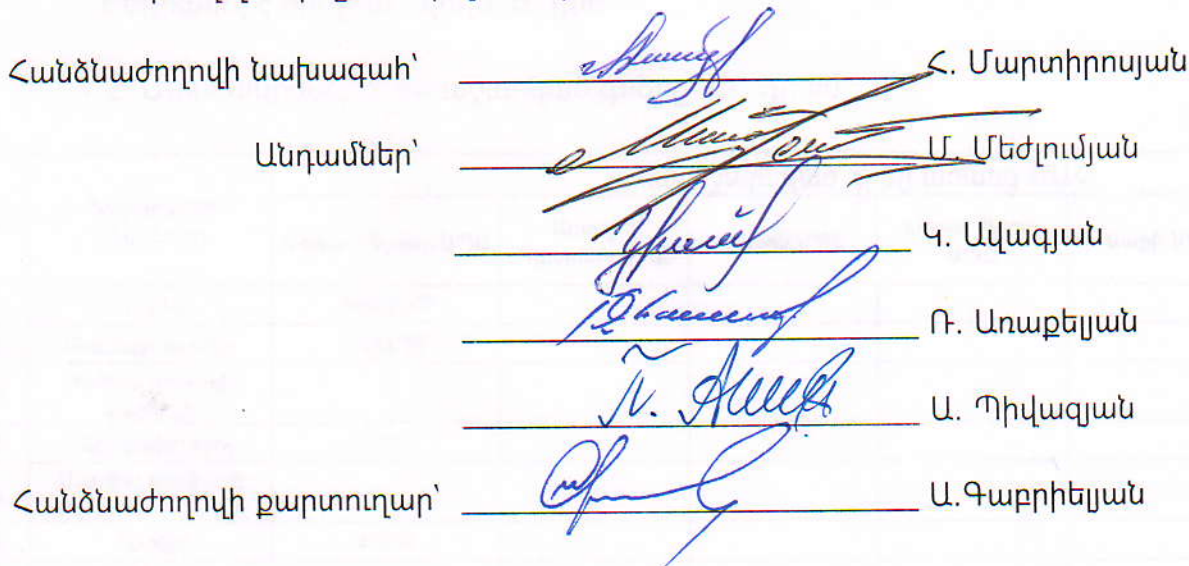 Հանձնաժողովի նախագահ՝ Հ. Մարտիրոսյան
Անդամներ՝ Մ. Մեժլումյան
Կ. Ավագյան
Ռ. Առաքելյան
Ա. Պիվազյան
Հանձնաժողովի քարտուղար՝ Ա.Գաբրիելյան